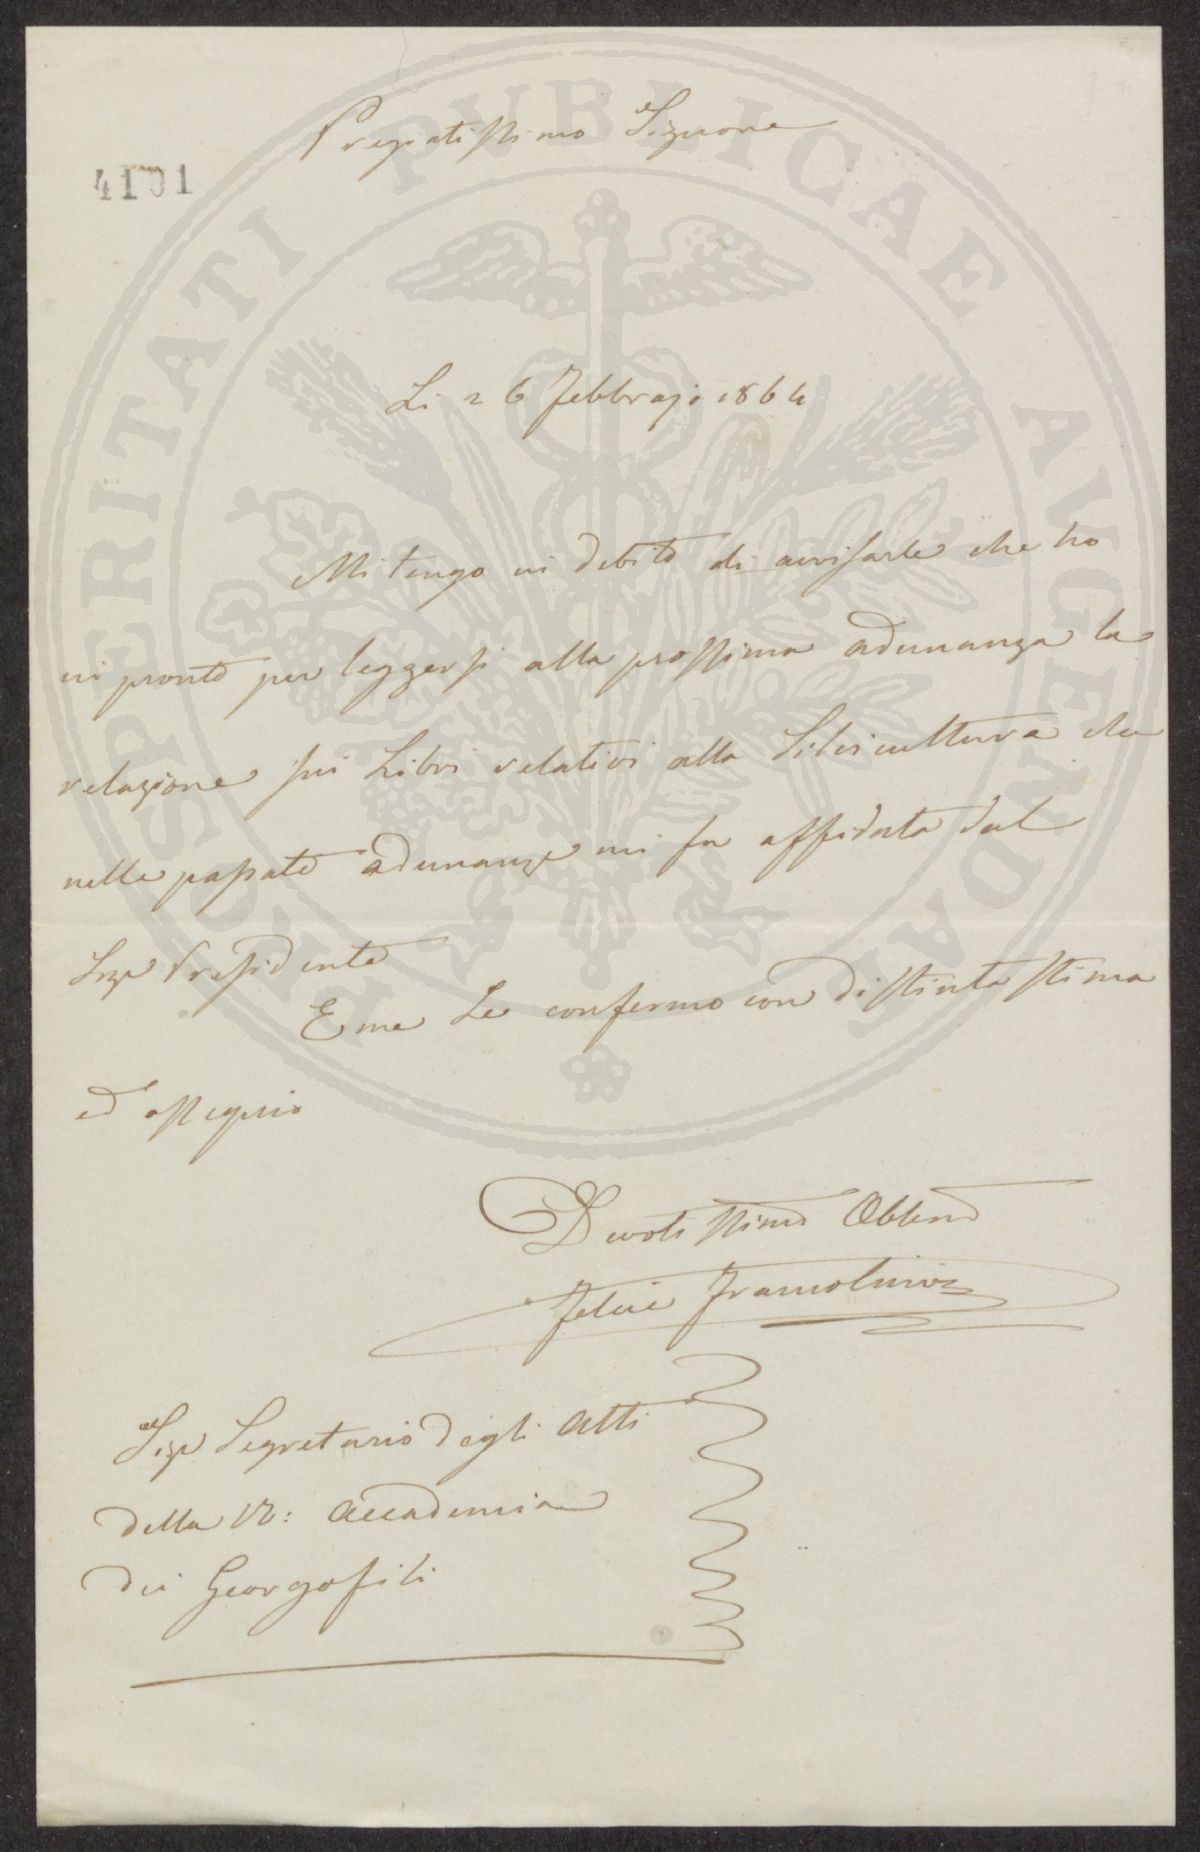 Pregiatissimo Signore
4101
Li 26 Febbrajo 1864
Mi tengo in debito di avvisarle che ho
in pronto per leggersi alla prossima adunanza la
relazione sui Libri relativi alla Silvicultura che
nelle passate adunanze mi fu affidata dal
Sigr Presidente
E me Le confermo con distinta stima
ed ossequio
Devotissimo Obblmo
Felice Francolini
Sigr Segretario degli Atti
della R: Accademia
dei Georgofili
PROSPERITATI PVBLICAE AVGENDAE